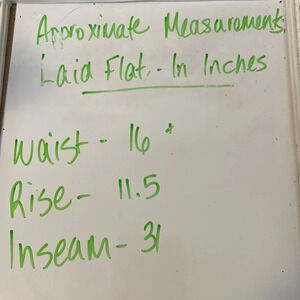 Approximate Measurements
Laid Flat - In Inches
Waist - 16 *
Rise - 11.5
Inseam - 31